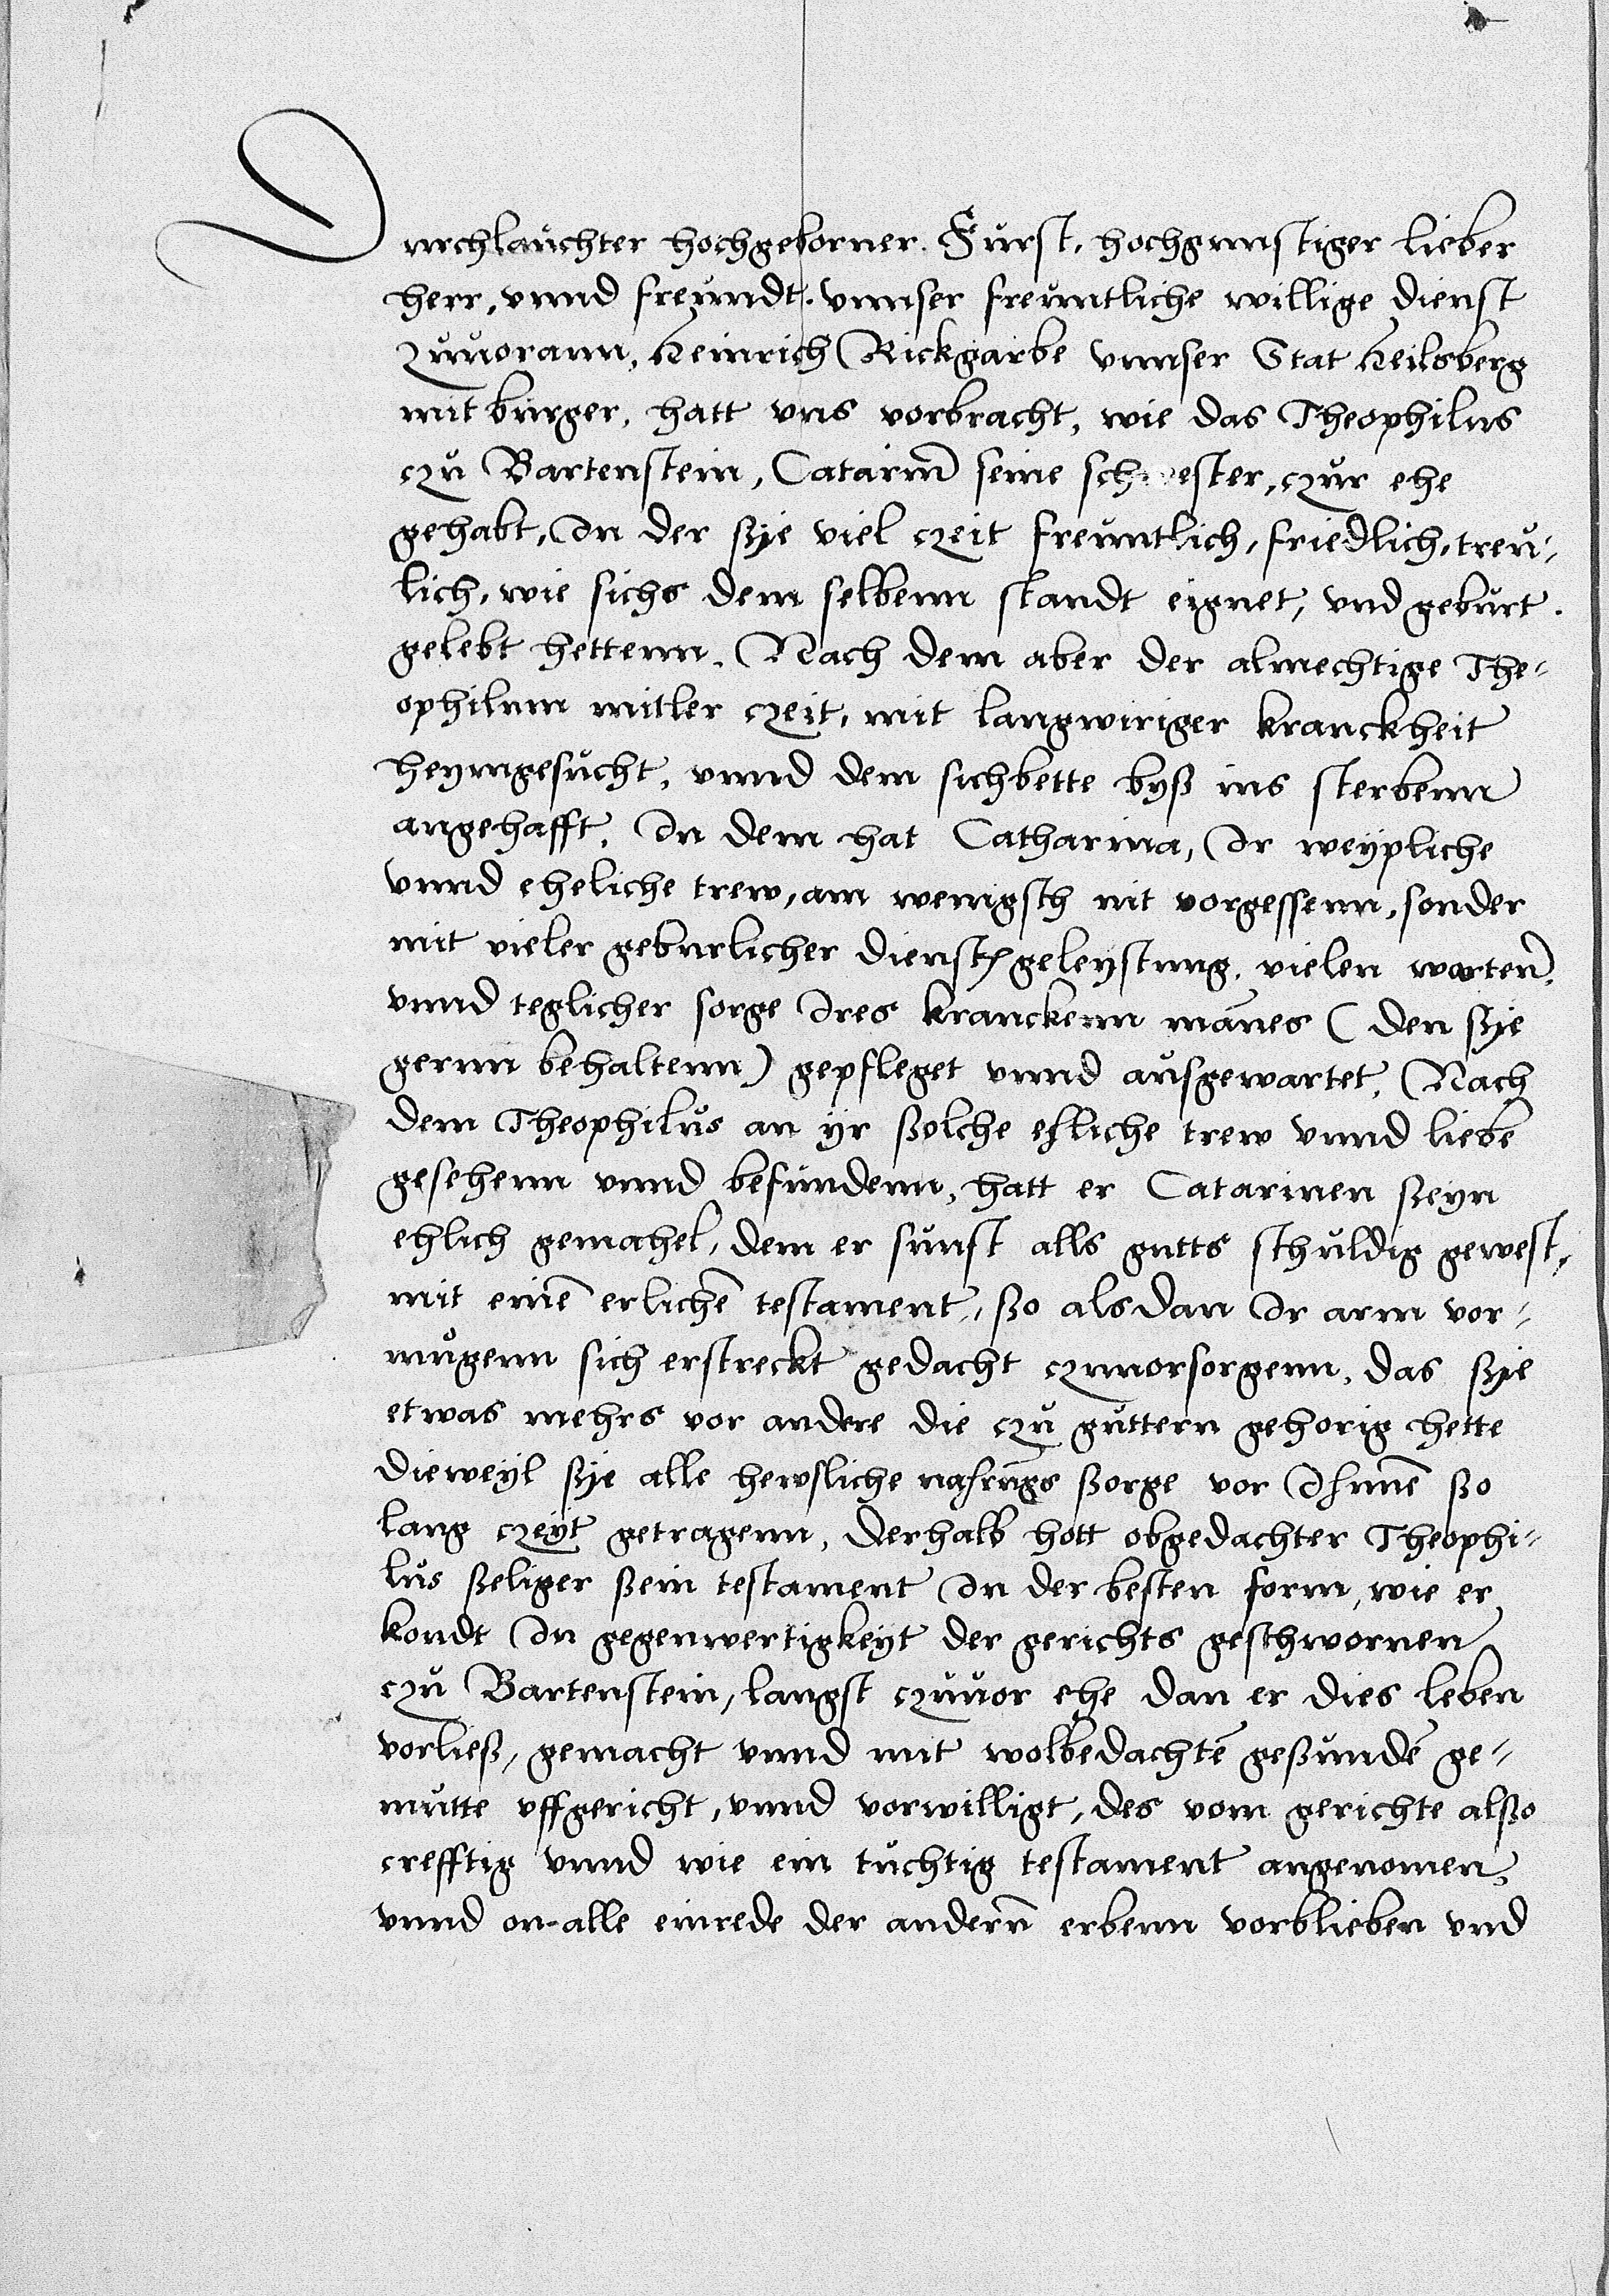 Durchlauchter hochgeborner. Fürst, hochgunstiger lieber
herr, vnnd freundt. vnnser freuntliche willige dienst
zuuorann, Heinrich Rickgarbe vnnser Stat Heilsberg
mit burger, hatt vns vorbracht, wie das Theophilus
czu Bartenstein, Catarinē seine schwester, czur ehe
gehabt, In der sye viel czeit freuntlich, friedlich, treu-
lich, wie sichs dem selbenn standt eignet, vnd geburt.
gelebt hettenn. Nach dem aber der almechtige The-
ophilum mitler czeit, mit langwiriger kranckheit
heymgesucht, vnnd dem sichbette byß ins sterbenn
angehafft. In dem hat Catharina, Ir weypliche
vnnd eheliche trew, am wenigsth nit vorgessenn, sonder
mit vieler geburlicher dienst geleystung, vielen wartenn
vnnd teglicher sorge Ires kranckenn mānes (den sye
gernn behaltenn) gepfleget vnnd ausgewartet, Nach
dem Theophilus an yr ßolche ehliche trew vnnd liebe
gesehenn vnnd befundenn, hatt er Catarinen ßeyn
ehlich gemahel, dem er sunst alls gutts schuldig gewest,
mit einē erlichē testament, ßo als dan Ir arm vor-
mugenn sich erstreckt gedacht czuuorsorgenn, das sye
etwas mehrs vor andere die czu guttern gehorig hette
dieweyl sye alle hewsliche nahrūgs ßorge vor Ihnnē ßo
lang czeyt getragenn, derhalb hott obgedachter Theophi-
lus ßeliger ßein testament In der besten form, wie er
kondt In gegenwertigkeyt der gerichts geschwornen
czu Bartenstein, langst czuuor ehe dan er dies leben
vorließ, gemacht vnnd mit wolbedachtē geßundē ge-
mutte vffgericht, vnnd vorwilligt, des vom gerichte alßo
crefftig vnnd wie ein tuchtig testament angenomen,
vnnd on alle einrede der andernn erbenn vorblieben vnd